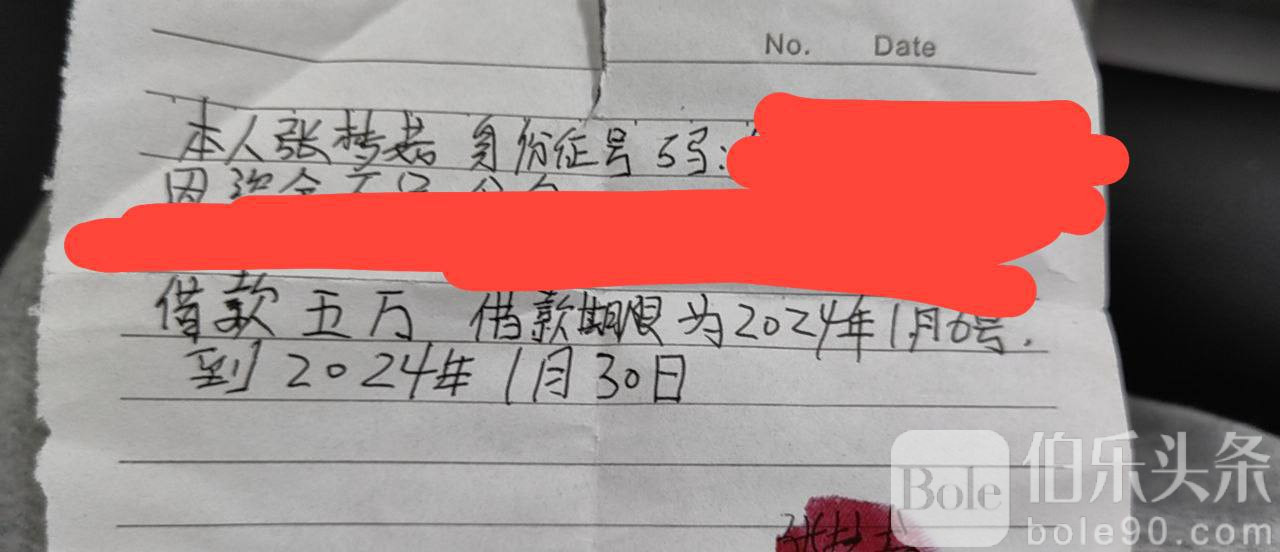 No. Date
本人张梦若 身份证号码:
因资金
借款五万 借款期限为2024年1月6号.
到2024年1月30日
Bole 伯乐头条
bole90.com